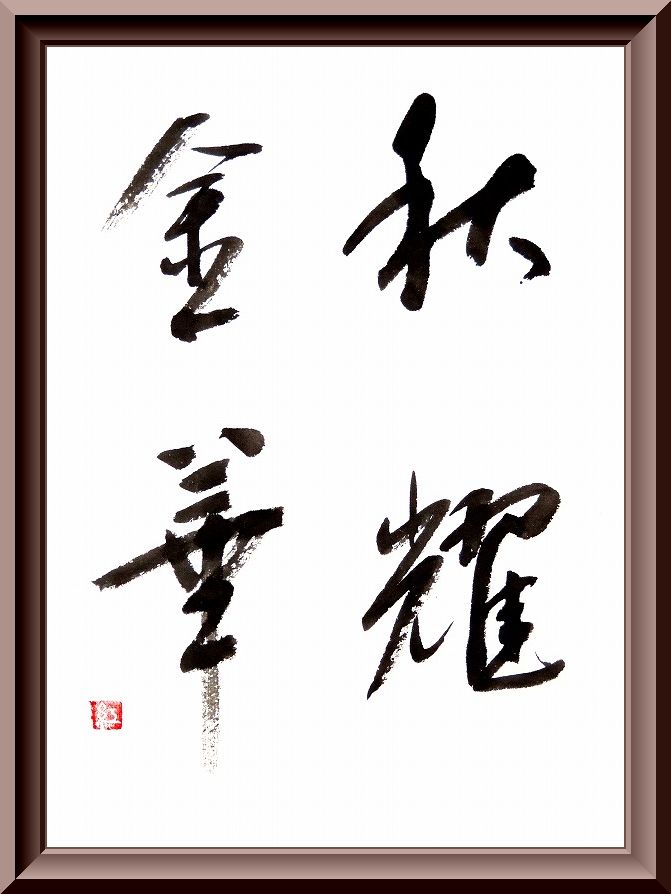 秋耀
金華